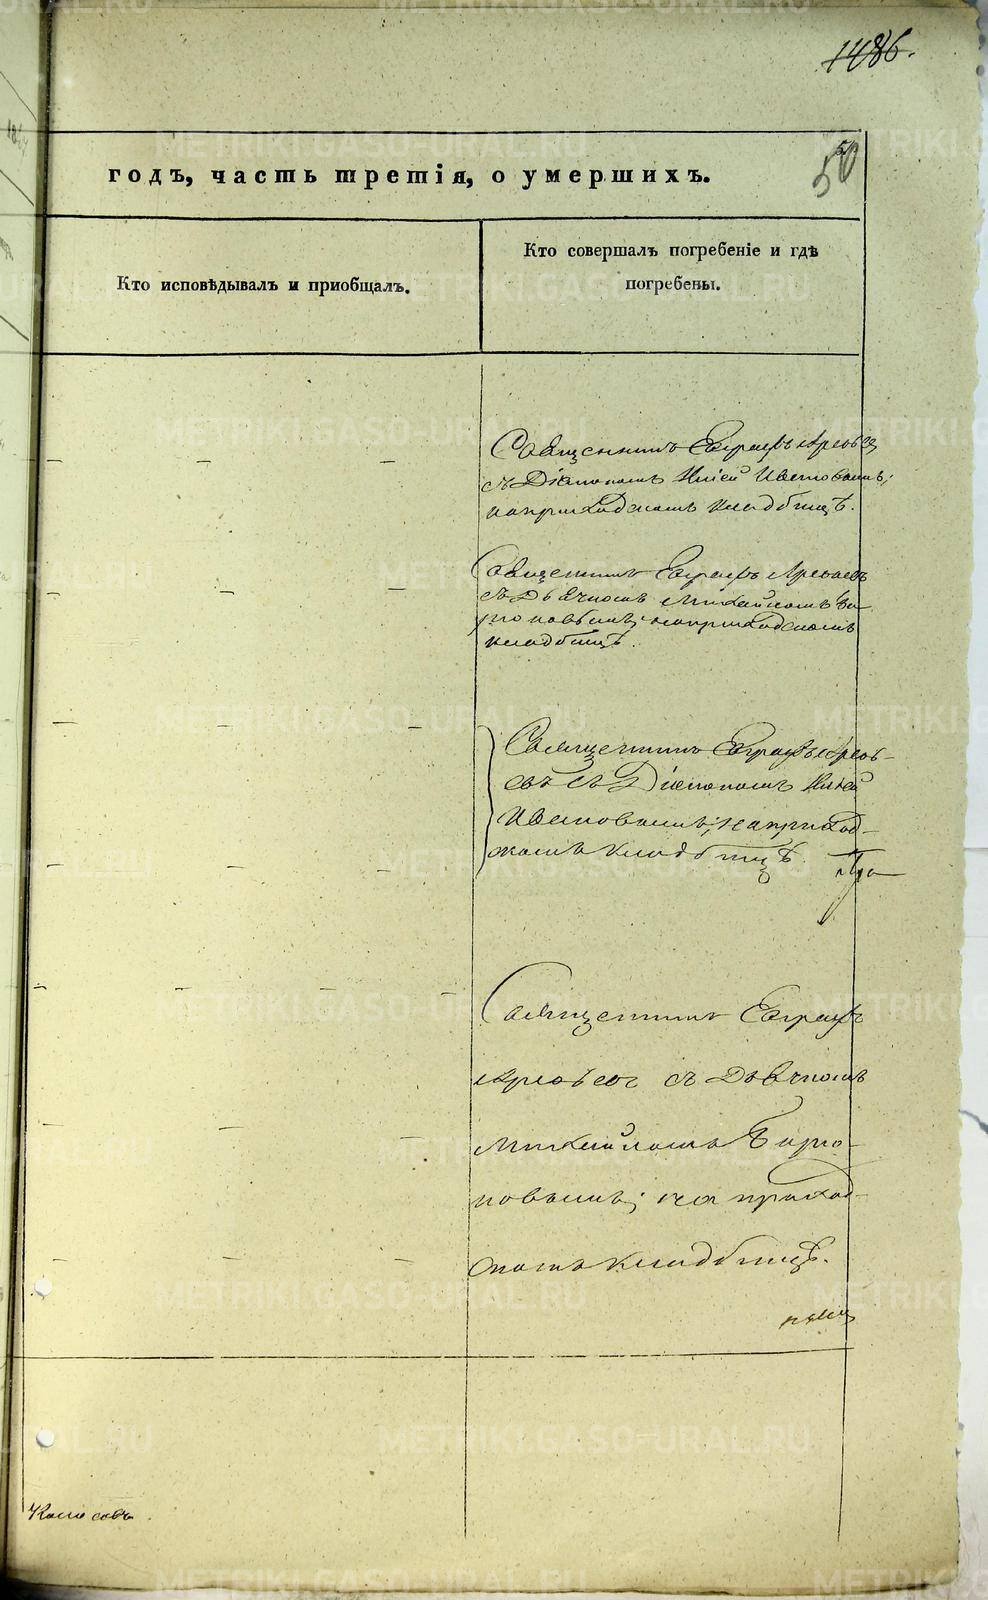 1486.
50
годъ, часть третія, о умершихъ.
Кто исповѣдывалъ и приобщалъ.
Кто совершалъ погребеніе и гдѣ
погребены.
Священникъ Евграфъ Арефьев
съ Діакономъ Иліей Ивановымъ;
на приходскомъ кладбищѣ.
Священникъ Евграфъ Арефьевъ
съ Дьячкомъ Михаиломъ
на приходскомъ
кладбищѣ.
Священникъ Евграфъ Арефь-
евъ съ Діакономъ Иліей
Ивановымъ; на приход-
скомъ кладбищѣ.
Священникъ Евграфъ
Арефьевъ съ Дьячкомъ
Михаиломъ
на приход-
скомъ кладбищѣ.
METRIKI.GASO-URAL.RU